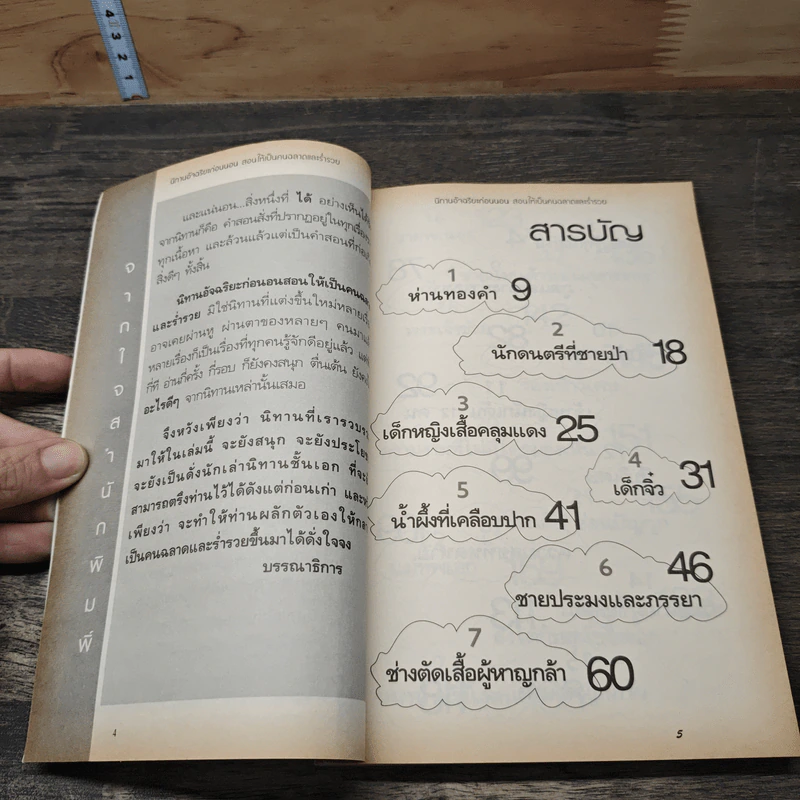 4 3 2 1
นิทานอัจฉริยะก่อนนอน สอนให้เป็นคนฉลาดและร่ำรวย
จากใจสำนักพิมพ์
และแน่นอน...สิ่งหนึ่งที่ ได้ อย่างเห็นได้
จากนิทานก็คือ คำสอนสั่งที่ปรากฏอยู่ในทุกเรื่อง
ทุกเนื้อหา และล้วนแล้วแต่เป็นคำสอนที่ก่อ
สิ่งดีๆ ทั้งสิ้น
นิทานอัจฉริยะก่อนนอนสอนให้เป็นคน
และร่ำรวย มิใช่นิทานที่แต่งขึ้นใหม่หลาย
อาจเคยผ่านหู ผ่านตาของหลายๆ คนมา
หลายเรื่องก็เป็นเรื่องที่ทุกคนรู้จักดีอยู่แล้ว
กี่ที อ่านกี่ครั้ง กี่รอบ ก็ยังคงสนุก ตื่นเต้น
อะไรดีๆ จากนิทานเหล่านั้นเสมอ
จึงหวังเพียงว่า นิทานที่เรารวบ
มาให้ในเล่มนี้ จะยังสนุก จะยังประโยช
จะยังเป็นดั่งนักเล่านิทานชั้นเอก ที่จะ
สามารถตรึงท่านไว้ได้ดังแต่ก่อนเก่า และ
เพียงว่า จะทำให้ท่านผลักตัวเองให้
เป็นคนฉลาดและร่ำรวยขึ้นมาได้ดั่งใจจง
บรรณาธิการ
4
นิทานอัจฉริยะก่อนนอน สอนให้เป็นคนฉลาดและร่ำรวย
สารบัญ
1
ห่านทองคำ 9
2
นักดนตรีที่ชายป่า 18
3
เด็กหญิงเสื้อคลุมแดง 25
4
เด็กจิ๋ว 31
5
น้ำผึ้งที่เคลือบปาก 41
6 46
ชายประมงและภรรยา
7
ช่างตัดเสื้อผู้หาญกล้า 60
5